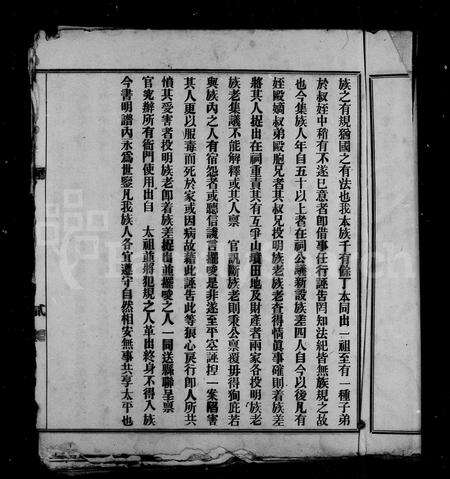 族之有規猶國之有法也我本族千有餘丁本同出一祖至有一種子弟
於叔姪中稍有不遂已意者即借事任行誣告罔知法紀皆無族規之故
也今集族人年自五十以上者在祠公議新設族差四人自今以後凡有
姪毆嫡叔弟毆胞兄者其叔兄投明族老族老查得情眞事確則着族差
將其人捉出在祠重責其有互爭山墳田地及財產者兩家各投明族老
族老集議不能解釋或其人禀 官訊斷族老則秉公禀覆毋得狥庇若
與族內之人有宿怨者或聽信讒言擺唆是非遂至平空誣捏一案陷害
其人更以服毒而死於家或因病故藉此誣告此等狼心戾行即人所共
憤其受害者投明族老即着族差捉出並擺唆之人一同送縣聯呈禀
官究辦所有衙門使用出自 太祖並將犯規之人革出終身不得入族
今書明譜內永爲世鑒凡我族人各宜遵守自然相安無事共享太平也
貳